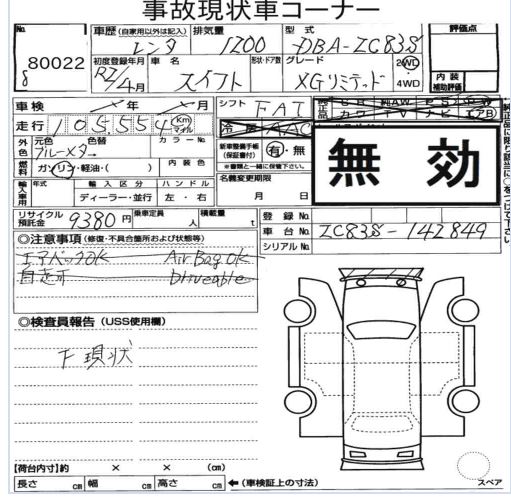 事故現状車コーナー
No. 80022
8
車歴(自家用以外は記入) レンタ
排気量 1200
型式 DBA-ZC83S
評価点
初度登録年月 R2/4月
車名 スイフト
形状・ドア数
グレード XGリミテッド
2WD・4WD
内装補助評価
車検 年 月
シフト FAT
走行 105,554 Km マイル
冷房 AAC
S R 純AW P S P W
カワ T V ナビ エアB
外色 元色 ブルーメタ 色替 カラーNo.
新車整備手帳(保証書付) 有・無
※書類と一緒に保管して下さい。
無効
燃料 ガソリン・軽油・( )
内装色
名義変更期限 月 日
輸入車用 年式 輸入区分 ディーラー・並行 ハンドル 左・右
リサイクル預託金 9380円
乗車定員 人
積載量 t
登録No.
車台No. ZC83S-142849
シリアルNo.
◎注意事項(修復・不具合箇所および状態等)
エアバックOK Air Bag OK
自走可 Driveable
◎検査員報告(USS使用欄)
下現状
【荷台内寸】約 × × (cm)
長さ cm 幅 cm 高さ cm ←(車検証上の寸法)
スペア